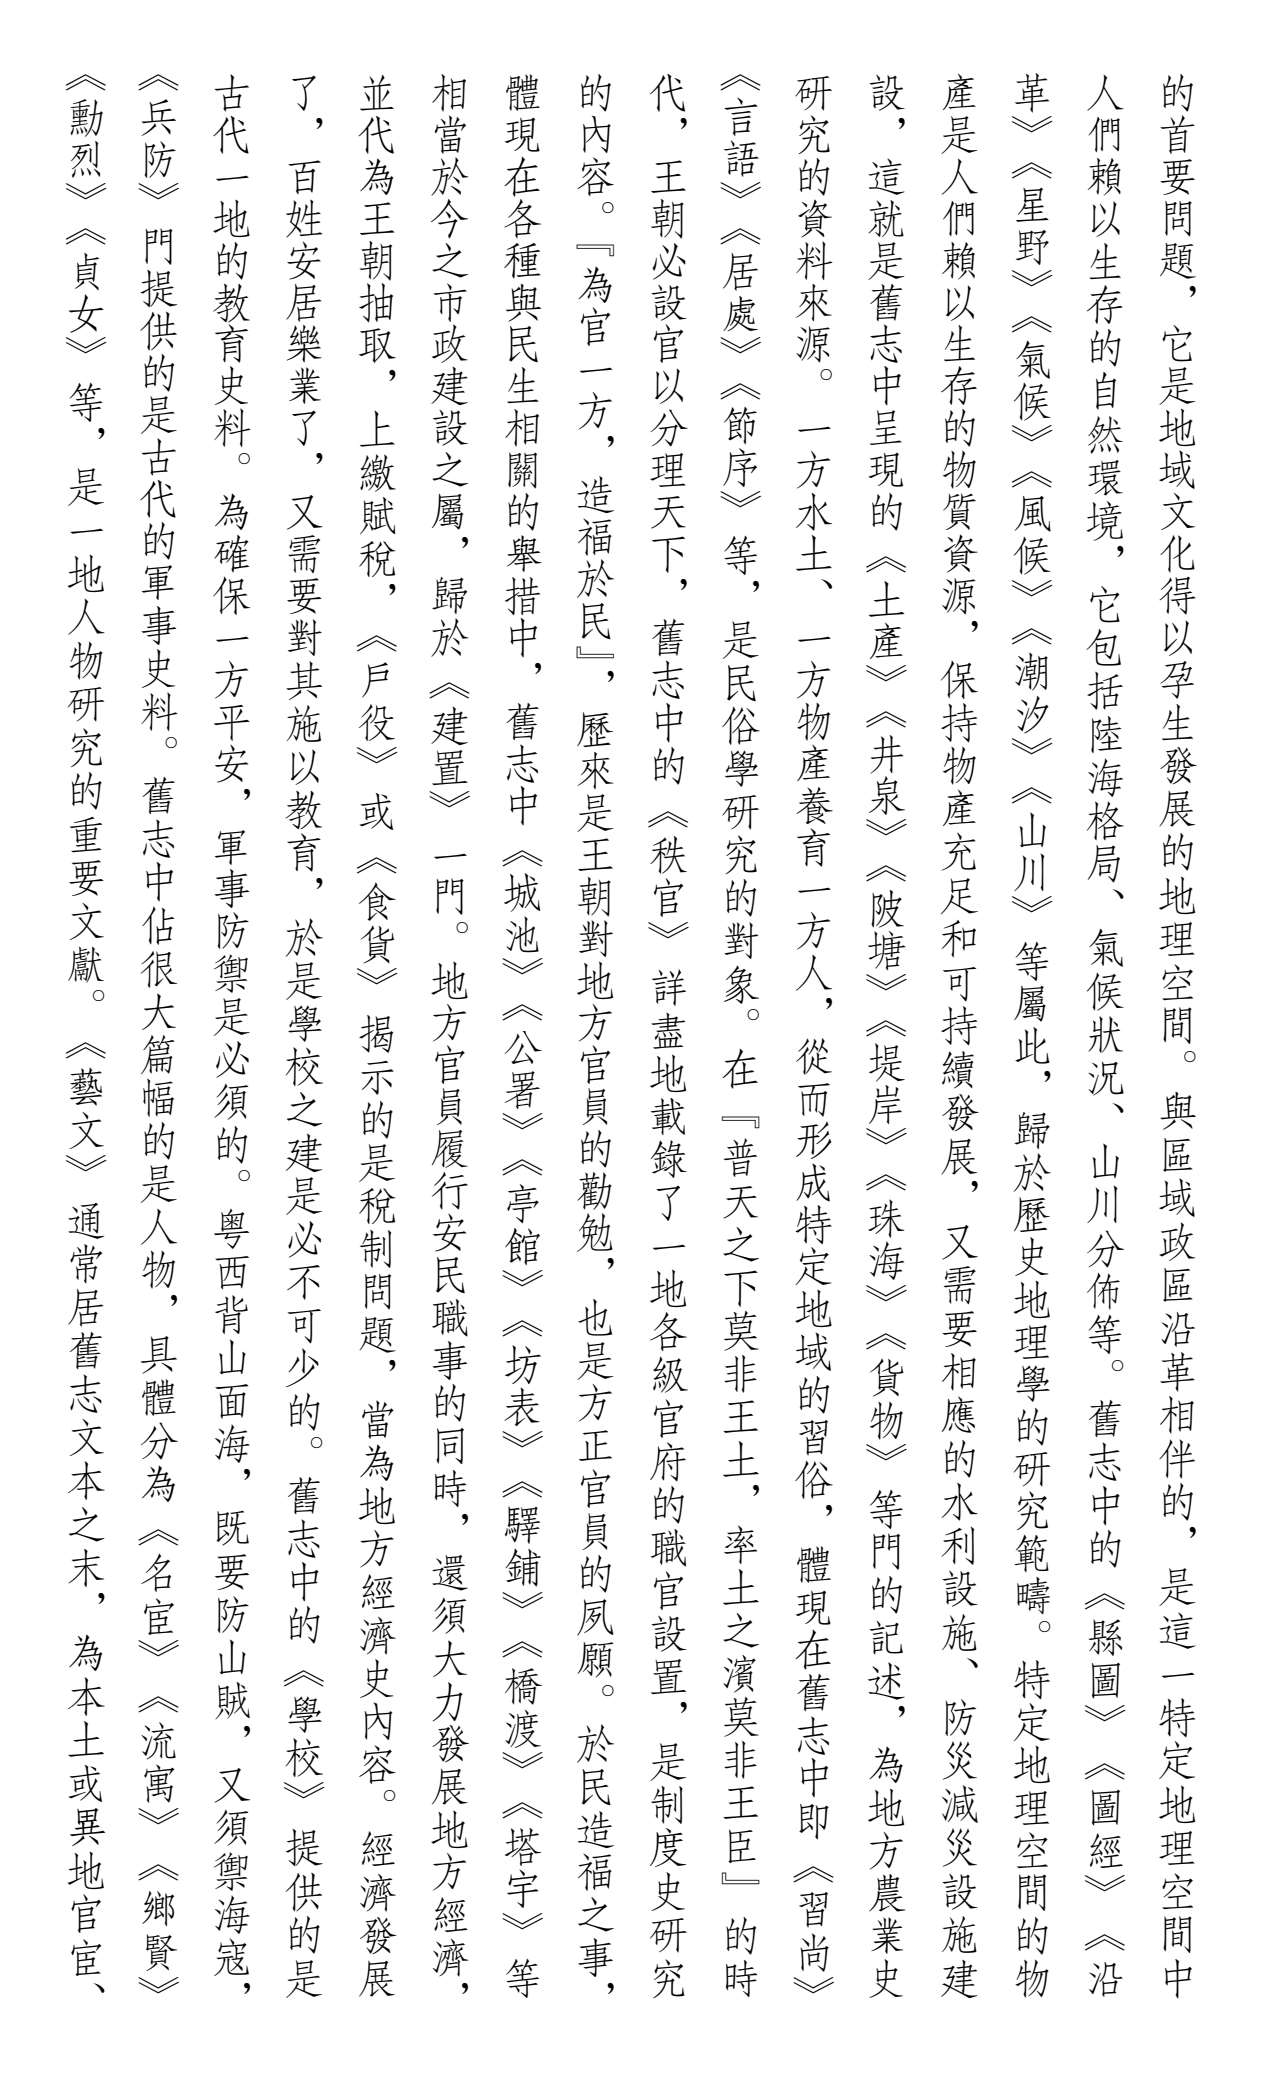 的首要問題，它是地域文化得以孕生發展的地理空間。與區域政區沿革相伴的，是這一特定地理空間中
人們賴以生存的自然環境，它包括陸海格局、氣候狀況、山川分佈等。舊志中的《縣圖》《圖經》《沿
革》《星野》《氣候》《風候》《潮汐》《山川》等屬此，歸於歷史地理學的研究範疇。特定地理空間的物
產是人們賴以生存的物質資源，保持物產充足和可持續發展，又需要相應的水利設施、防災減災設施建
設，這就是舊志中呈現的《土產》《井泉》《陂塘》《堤岸》《珠海》《貨物》等門的記述，為地方農業史
研究的資料來源。一方水土、一方物產養育一方人，從而形成特定地域的習俗，體現在舊志中即《習尚》
《言語》《居處》《節序》等，是民俗學研究的對象。在『普天之下莫非王土，率土之濱莫非王臣』的時
代，王朝必設官以分理天下，舊志中的《秩官》詳盡地載錄了一地各級官府的職官設置，是制度史研究
的內容。『為官一方，造福於民』，歷來是王朝對地方官員的勸勉，也是方正官員的夙願。於民造福之事，
體現在各種與民生相關的舉措中，舊志中《城池》《公署》《亭館》《坊表》《驛鋪》《橋渡》《塔宇》等
相當於今之市政建設之屬，歸於《建置》一門。地方官員履行安民職事的同時，還須大力發展地方經濟，
並代為王朝抽取，上繳賦稅，《戶役》或《食貨》揭示的是稅制問題，當為地方經濟史內容。經濟發展
了，百姓安居樂業了，又需要對其施以教育，於是學校之建是必不可少的。舊志中的《學校》提供的是
古代一地的教育史料。為確保一方平安，軍事防禦是必須的。粵西背山面海，既要防山賊，又須禦海寇，
《兵防》門提供的是古代的軍事史料。舊志中佔很大篇幅的是人物，具體分為《名宦》《流寓》《鄉賢》
《勳烈》《貞女》等，是一地人物研究的重要文獻。《藝文》通常居舊志文本之末，為本土或異地官宦、